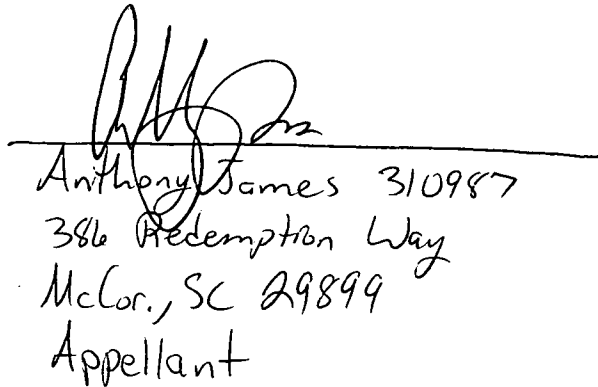 Anthony James 310987
386 Redemption Way
McCor., SC 29899
Appellant